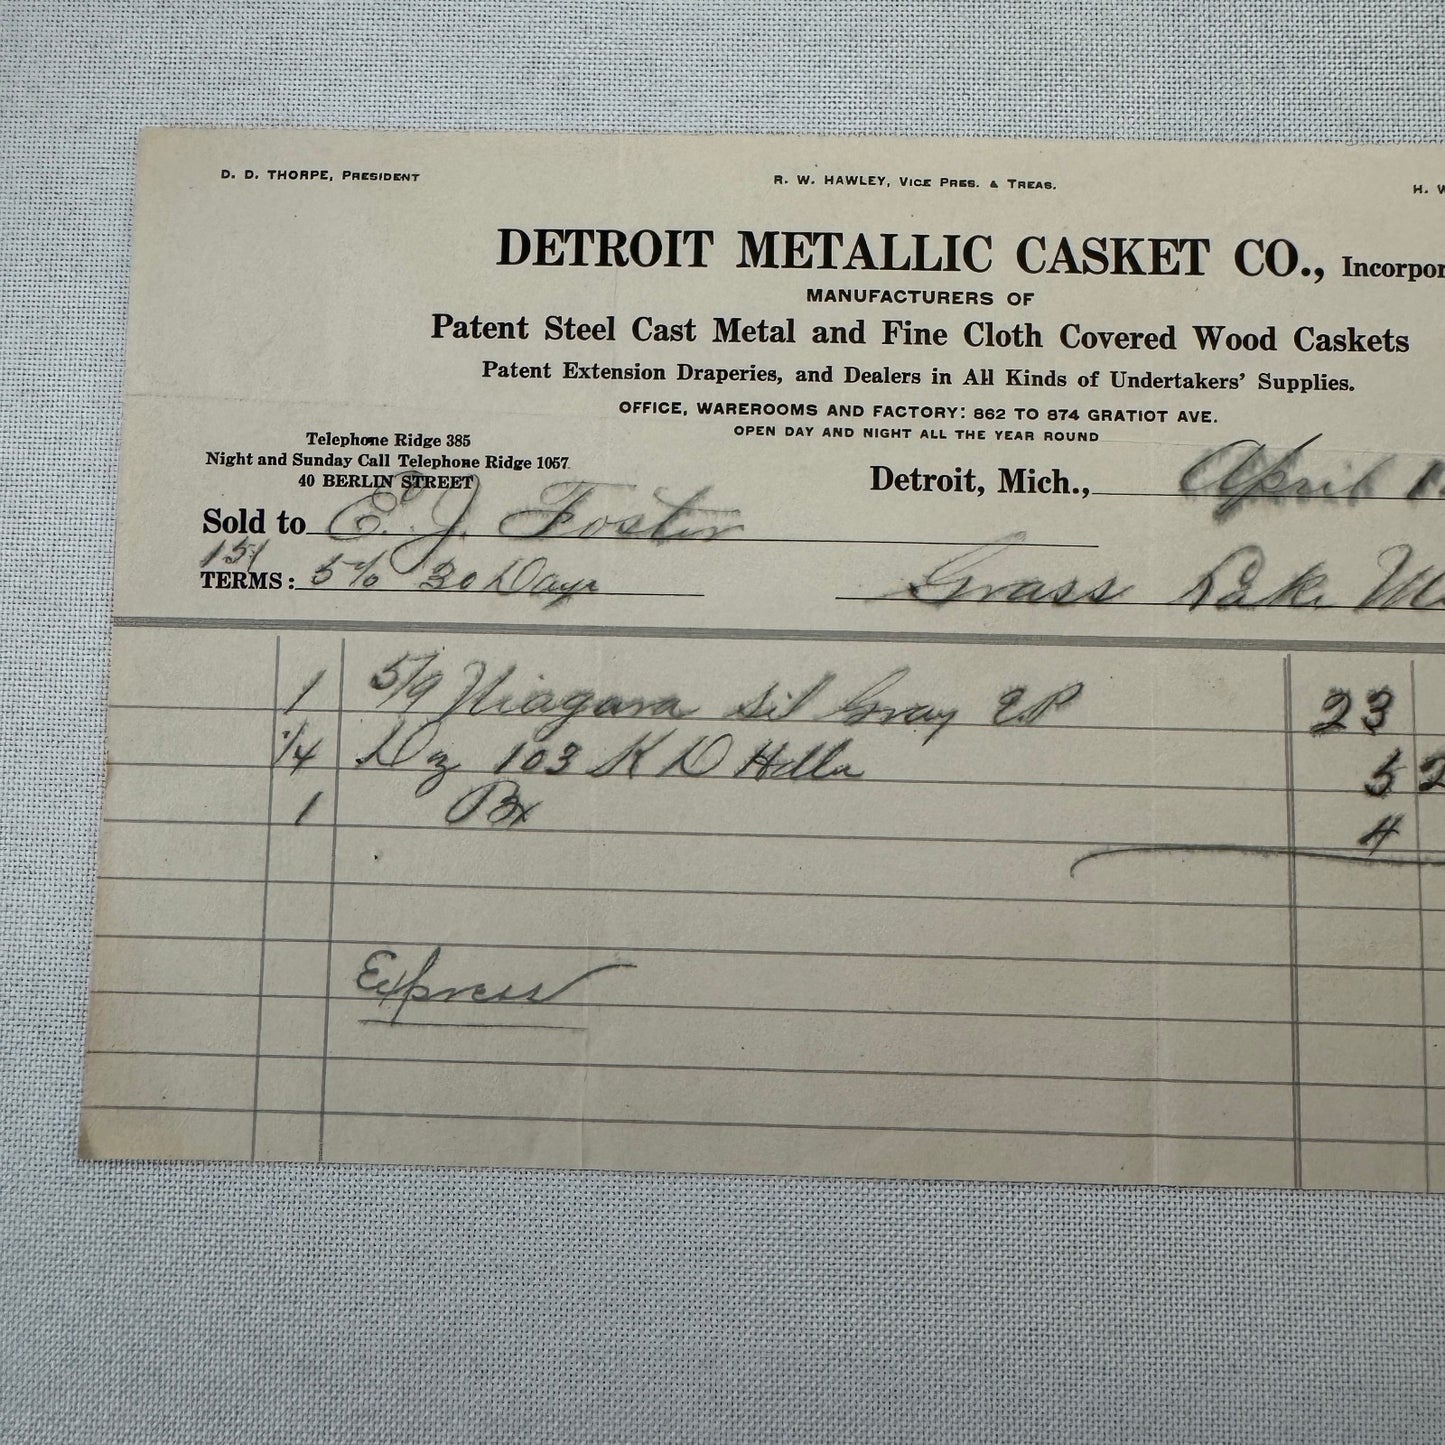 D. D. THORPE, PRESIDENT
R. W. HAWLEY, VICE PRES. & TREAS.
H. W
DETROIT METALLIC CASKET CO., Incorpor
MANUFACTURERS OF
Patent Steel Cast Metal and Fine Cloth Covered Wood Caskets
Patent Extension Draperies, and Dealers in All Kinds of Undertakers' Supplies.
OFFICE, WAREROOMS AND FACTORY: 862 TO 874 GRATIOT AVE.
OPEN DAY AND NIGHT ALL THE YEAR ROUND
Telephone Ridge 385
Night and Sunday Call Telephone Ridge 1057
40 BERLIN STREET
Detroit, Mich., April 1
Sold to E. J. Foster
151
TERMS: 5% 30 Days
Grass Lake M
1 5/9 Niagara Sil Gray 23
1/4 Dz 103 K D Hdls 5 2
1 Bx 4
Express